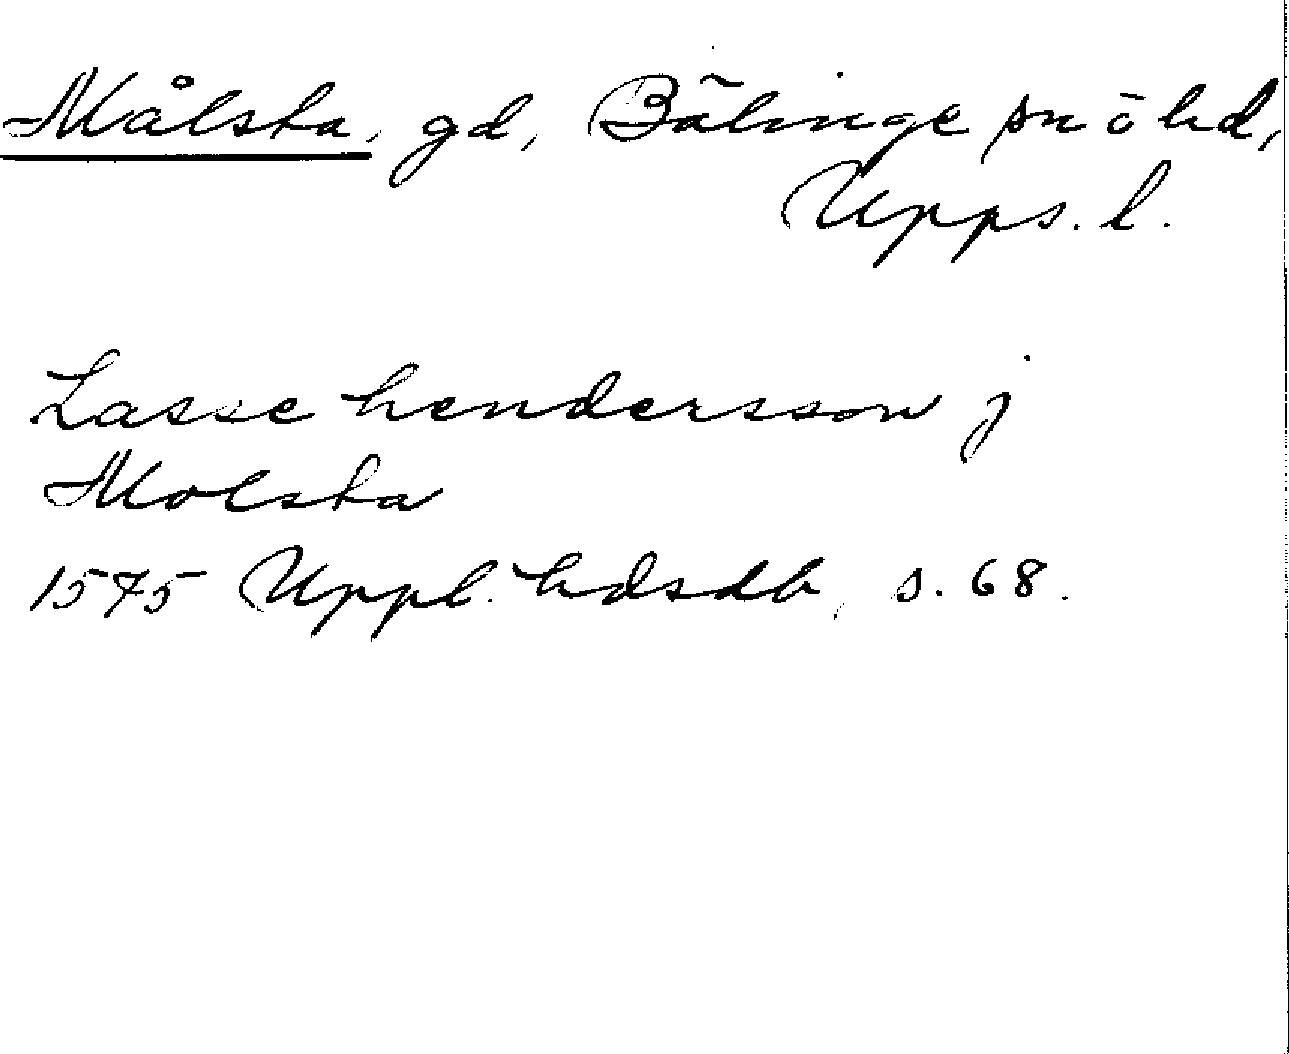 Målsta, gd, Bälinge sn ö hd,
Upps. l.
Lasse hendersson j
Molsta
1545 Uppl. hdsdb, s. 68.